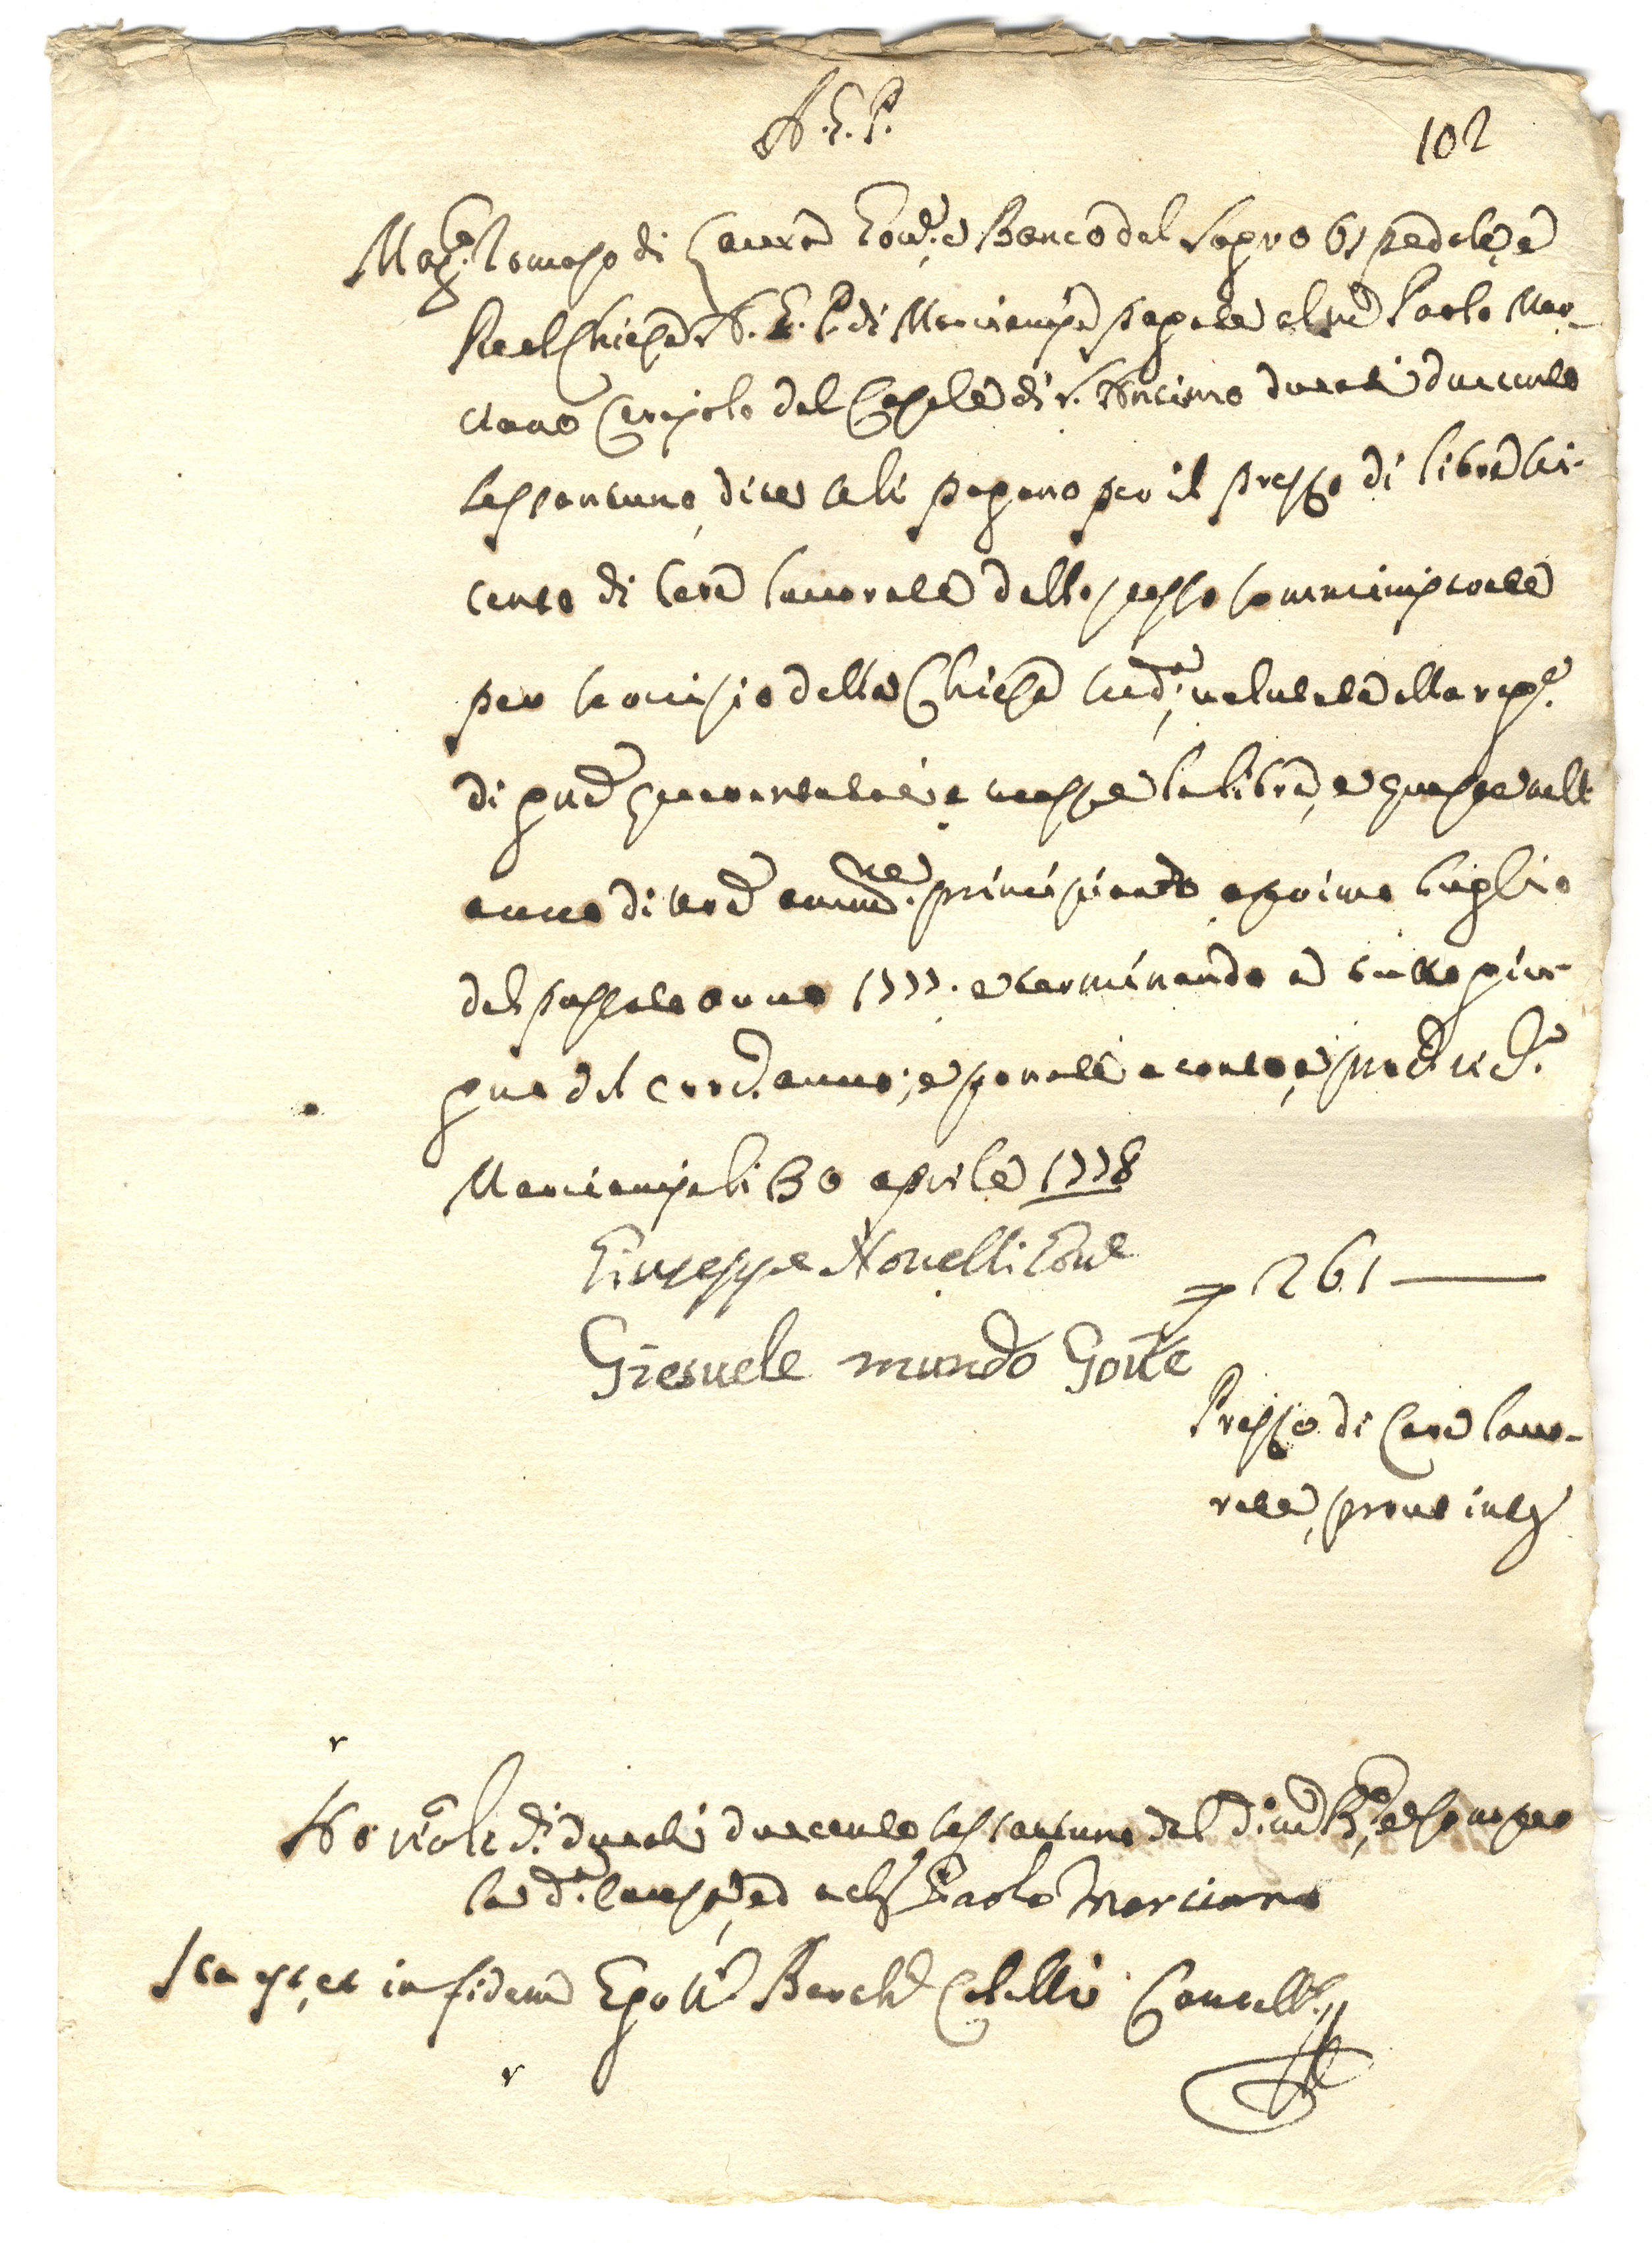 A. G. P.
102
Mag.co Tomaso di Lauro Gov.e e Banco del Sagro Ospedale, e
Real Chiesa A. G. P. di Marcianise pagate al m.co Paolo Mar-
ciano Cerajolo del Casale di S. Antimo ducati duecento
sessantuno, dite celi pagano per il prezzo di libre sei-
cento di cera lavorata dallo stesso somministrata
per servizio della Chiesa sud.a, valutata alla rag.e
di gra quarantatre, e mezzo la libra, e questa nell'
anno di sua amm.ne principiando a primo Luglio
del passato anno 1777. e terminando a tutto giu-
gno del corr.e anno; e ponete a conto,
Marcianise li 30 aprile 1778
Giuseppe Novelli Gov.e
Giesuele mundo Gov.re
261
Prezzo di Cera lavo-
rata, prout intus
Ho ric.to li d.i ducati duecento sessantuno dal di m.co
la d.a causa, ed Paolo Marciano
Ita est, et in fidem Ego U.J.D. Barth. Cancell.